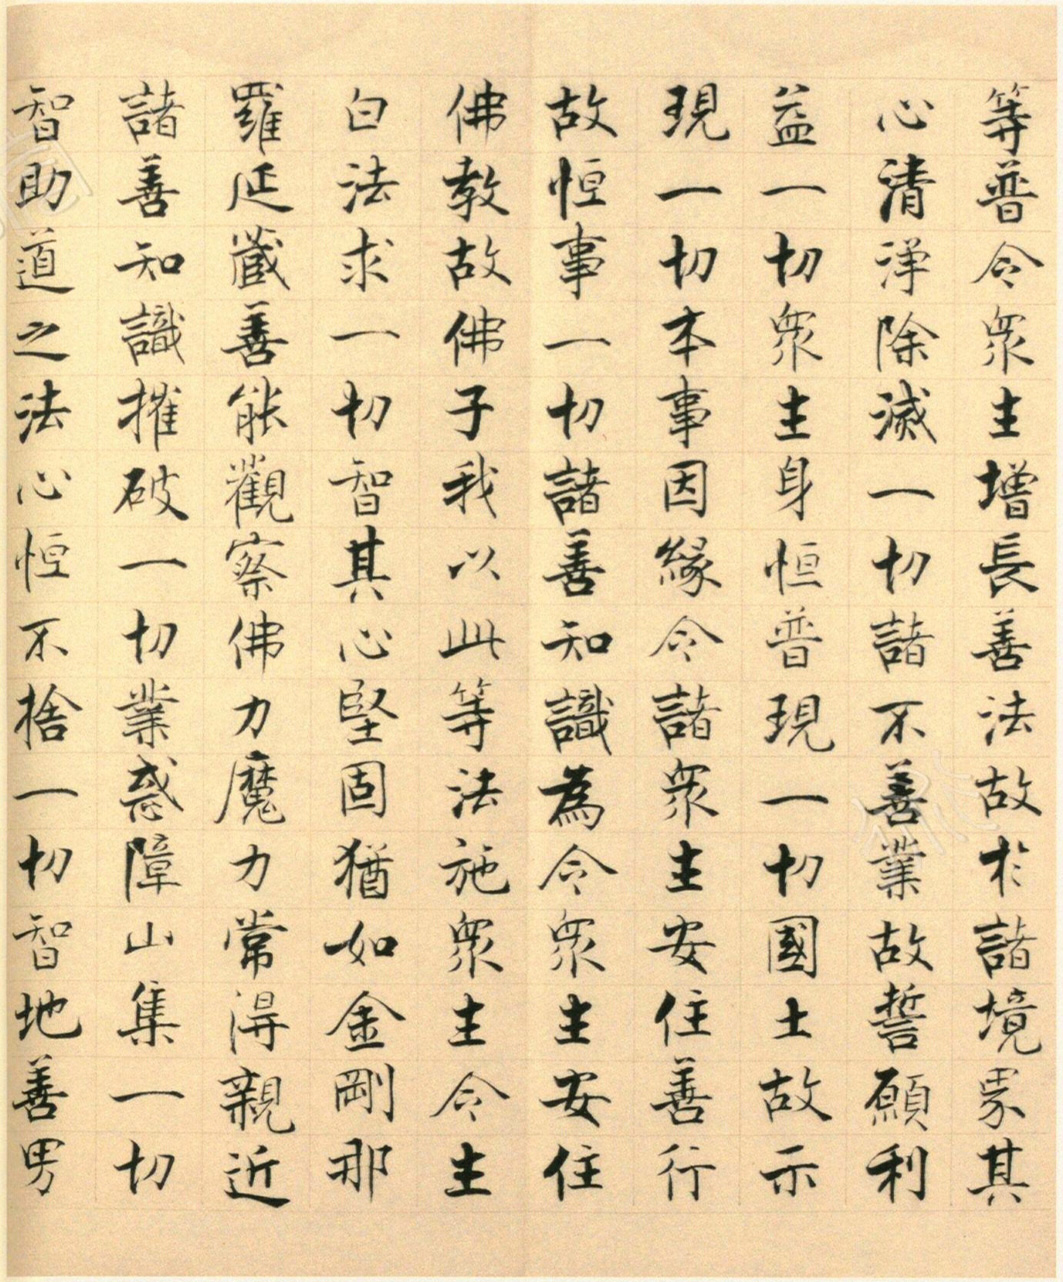 等普令衆生增長善法故於諸境界其
心清淨除滅一切諸不善業故誓願利
益一切衆生身恒普現一切國土故示
現一切本事因緣令諸衆生安住善行
故恒事一切諸善知識為令衆生安住
佛教故佛子我以此等法施衆生令生
白法求一切智其心堅固猶如金剛那
羅延藏善能觀察佛力魔力常得親近
諸善知識摧破一切業惑障山集一切
智助道之法心恒不捨一切智地善男